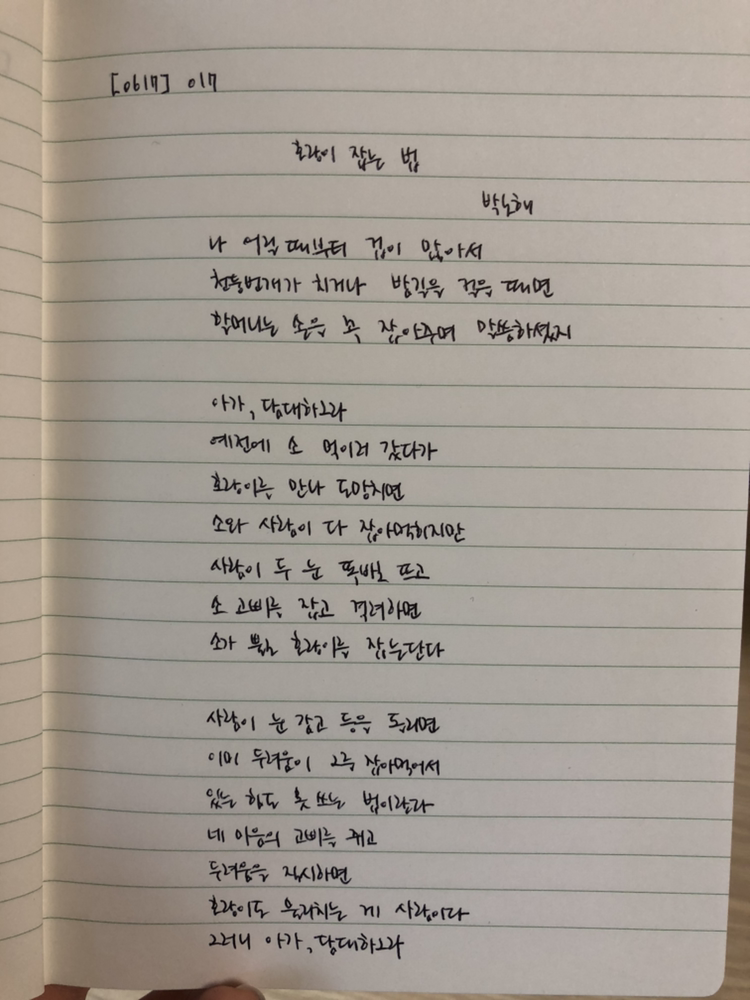 [0617] 017
호랑이 잡는 법
박노해
나 어릴 때부터 겁이 많아서
천둥번개가 치거나 밤길을 걸을 때면
할머니는 손을 꼭 잡아주며 말씀하셨지
아가, 담대하그라
예전에 소 먹이러 갔다가
호랑이를 만나 도망치면
소와 사람이 다 잡아먹히지만
사람이 두 눈 똑바로 뜨고
소 고삐를 잡고 격려하면
소가 뿔로 호랑이를 잡는단다
사람이 눈 감고 등을 돌리면
이미 두려움이 그를 잡아먹어서
있는 힘도 못 쓰는 법이란다
네 마음의 고삐를 쥐고
두려움을 직시하면
호랑이도 물리치는 게 사람이다
그러니 아가, 담대하그라